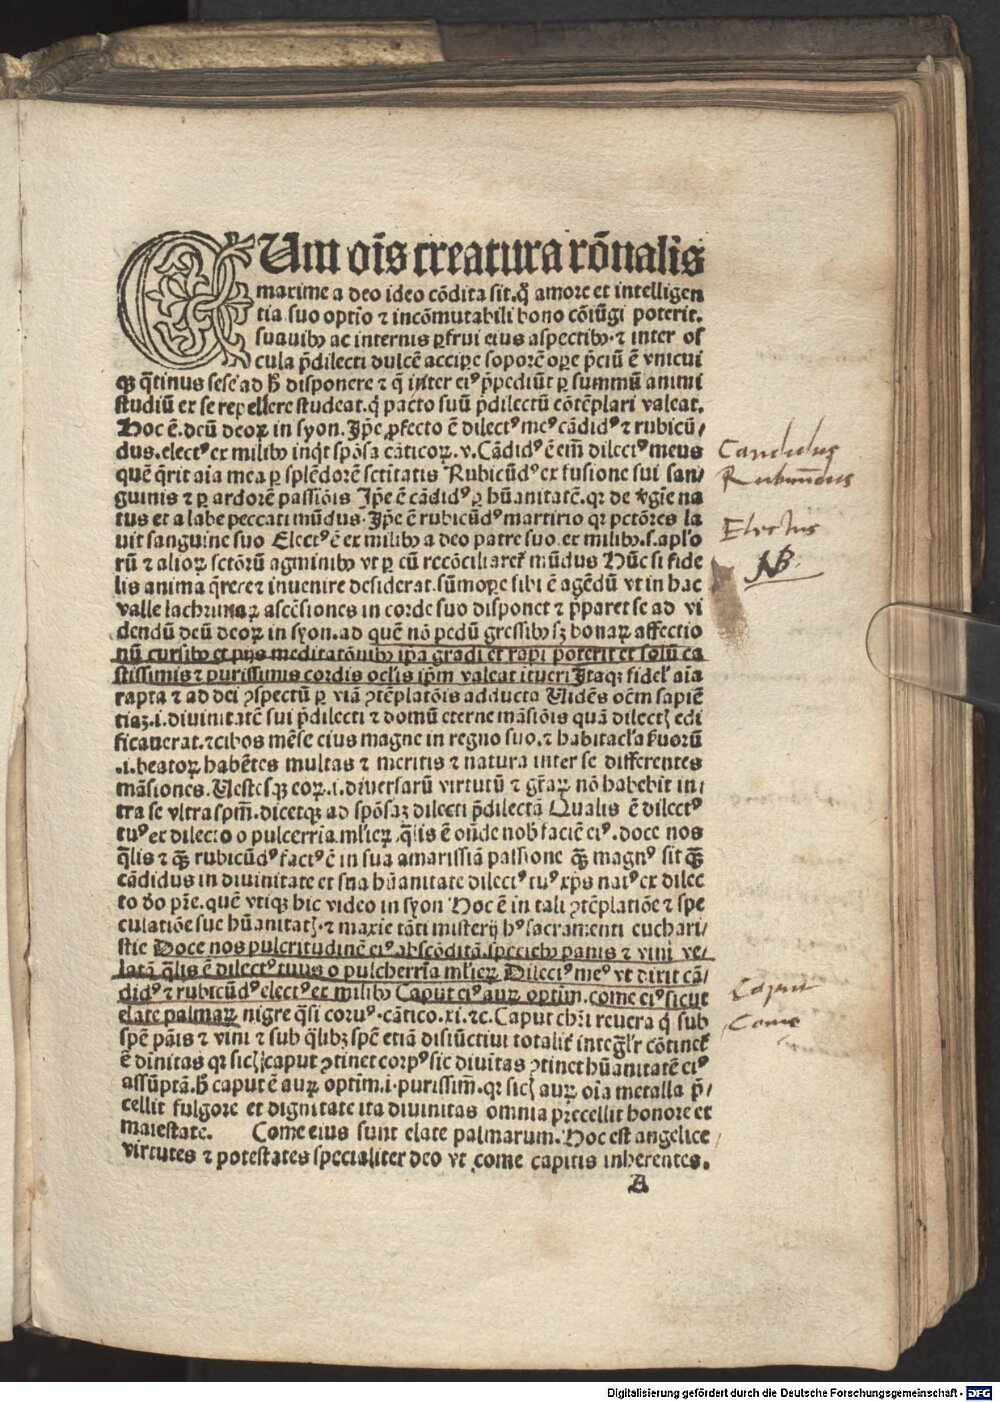 CUm oīs creatura rōnalis
maxime a deo ideo cōdita sit. q̄ amore et intelligen
tia suo optīo ⁊ incōmutabili bono cōiūgi poterit.
suauibꝰ ac internis ꝑfrui eius aspectibꝰ ⁊ inter os
cula p̄dilecti dulcē acciꝑe soporē oꝑe p̄ciū ē vnicui
qꝫ q̄tinus sese ad h̄ disponere ⁊ q̄ inter eiꝰ p̄pediūt ꝑ summū animi
studiū ex se repellere studeat. q̄ pacto suū p̄dilectū cōtēplari valeat.
Hoc ē. deū deoꝝ in syon. Ip̄e ꝓfecto ē dilectꝰ meꝰ cādidꝰ ⁊ rubicū/
dus. electꝰ ex milibꝰ inq̄t spōsa cāticoꝝ. v. Cādidꝰ ē em̄ dilectꝰ meus
quē q̄rit aīa mea ꝑ splēdorē sctitatis Rubicūdꝰ ex fusione sui san/
guinis ⁊ ꝑ ardorē passiōis Ip̄e ē cādidꝰ ꝑ hūanitatē. qr de v̄gīe na
tus et a labe peccati mūdus. Ip̄e ē rubicūdꝰ martirio qr pctōres la
uit sanguine suo Electꝰ ē ex milibꝰ a deo patre suo. ex milibꝰ .s. aplo
rū ⁊ alioꝝ sctōrū agminibꝰ vt ꝑ eū recōciliaret̄ mūdus Hūc si fide
lis anima q̄rere ⁊ inuenire desiderat. sūmoꝑe sibi ē agēdū vt in hac
valle lachrimaꝝ ascēsiones in corde suo disponet ⁊ p̄paret se ad vi
dendū deū deoꝝ in syon. ad quē nō pedū gressibꝰ sꝫ bonaꝝ affectio
nū cursibꝰ et pijs meditatōnibꝰ ip̄a gradi et rapi poterit et solū ca
stissimis ⁊ purissimis cordis oclis ip̄m valeat itueri Itaqꝫ fidel̄ aīa
rapta ⁊ ad dei ꝯspectū ꝑ viā ꝯtēplatōis adducta Uidēs oēm sapiē
tiaꝫ .i. diuinitatē sui p̄dilecti ⁊ domū eterne māsiōis quā dilectꝰ edi
ficauerat. ⁊ cibos mēse eius magne in regno suo. ⁊ habitacla ẜuorū
.i. beatoꝝ habētes multas ⁊ meritis ⁊ natura inter se differentes
māsiones. Uestesqꝫ eoꝝ .i. diuersarū virtutū ⁊ gr̄aꝝ nō habebit in/
tra se vltra spm̄. dicetqꝫ ad spōsaꝫ dilecti p̄dilectā Qualis ē dilectꝰ
tuꝰ ex dilecto o pulcerria ml̄ieꝝ. q̄lis ē on̄de nob̄ faciē eiꝰ. doce nos
q̄lis ⁊ qꝫ rubicūdꝰ factꝰ ē in sua amarissīā passione qꝫ magnꝰ sit qꝫ
cādidus in diuinitate et sua hūanitate dilectꝰ tuꝰ xp̄s natꝰ ex dilec
to deo pr̄e. quē vtiqꝫ hic video in syon Hoc ē in tali ꝯtēplatiōe ⁊ spe
culatiōe sue hūanitatꝭ. ⁊ maxīe tāti misterij hꝰ sacramenti euchari/
stie Doce nos pulcritudinē eiꝰ abscōditā speciebꝰ panis ⁊ vini ve/
latā q̄lis ē dilectꝰ tuus o pulcherrīa ml̄ieꝝ Dilectꝰ meꝰ vt dixit cā/
didꝰ ⁊ rubicūdꝰ electꝰ ex milibꝰ Caput eiꝰ auꝝ optim̄. come eiꝰ sicut
elate palmaꝝ nigre q̄si coruꝰ. cātico. xi. ⁊c. Caput chr̄i reuera q̄ sub
spē pāis ⁊ vini ⁊ sub q̄libꝫ spē etiā disiūctiui totalit̄ integl̄r cōtinet̄
ē diīnitas qr sicꝭ caput ꝯtinet corpꝰ sic diuitas ꝯtinet hūanitatē eiꝰ
assūptā. h̄ caput ē auꝝ optim̄ .i. purissim̄. qr sicꝭ auꝝ oīa metalla p̄/
cellit fulgore et dignitate ita diuinitas omnia precellit honore et
maiestate. Come eius sunt elate palmarum. Hoc est angelice
virtutes ⁊ potestates specialiter deo vt come capitis inherentes.
A
Candidus
Rubicundus
Electus
NB.
Caput
Come
Digitalisierung gefördert durch die Deutsche Forschungsgemeinschaft - DFG